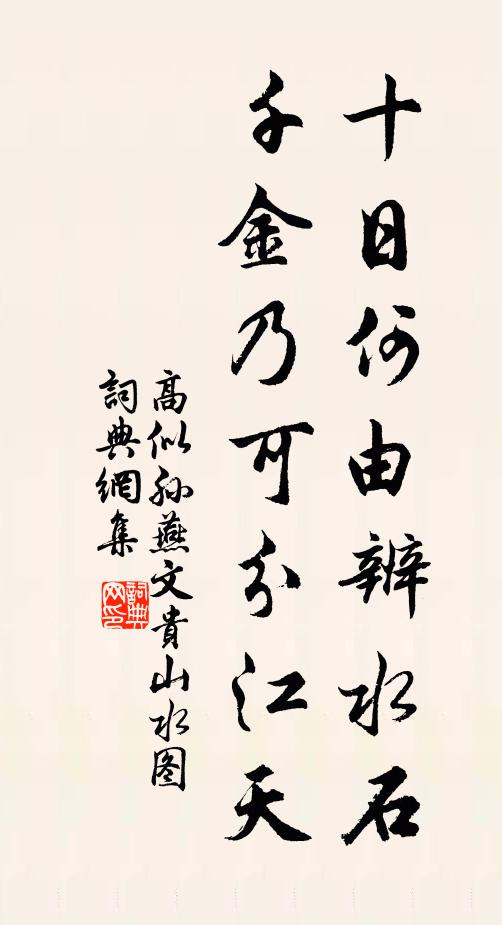 十日何由辨水石
千金乃可分江天
高似孙燕文貴山水图
詞典網集
詞典网印